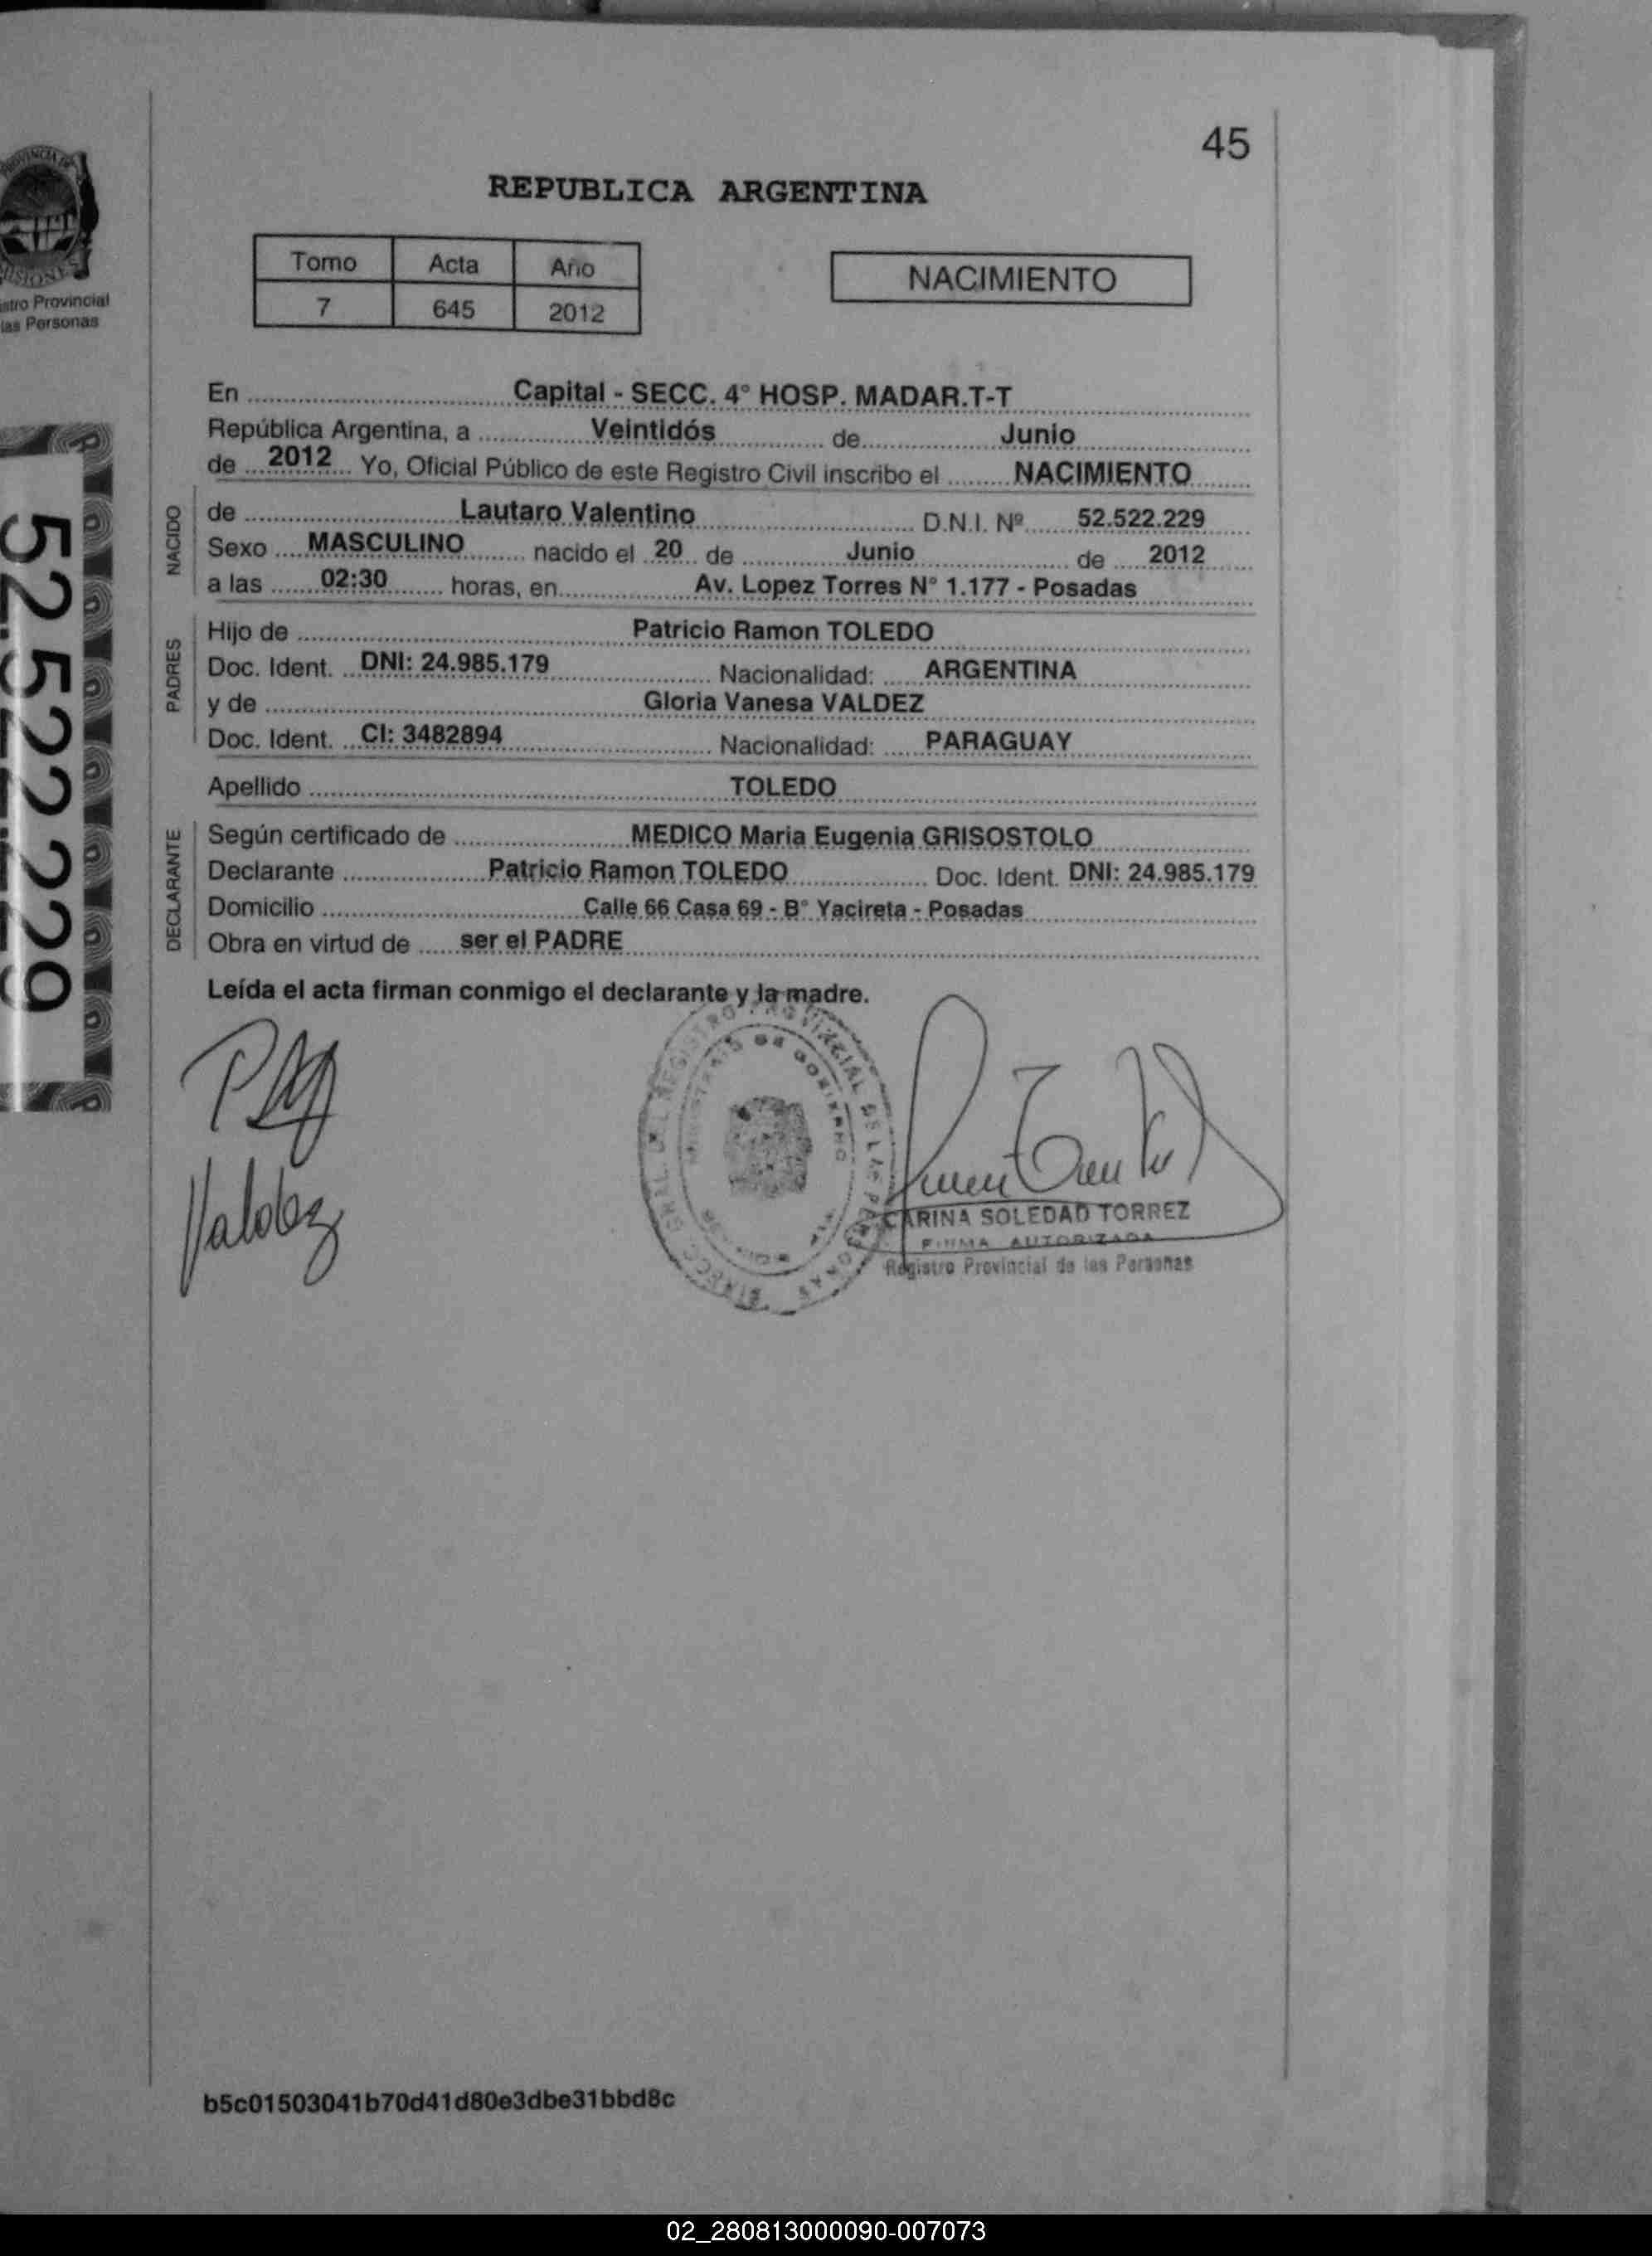 45
REPUBLICA ARGENTINA
Tomo Acta Año
7 645 2012
NACIMIENTO
PROVINCIA DE
MISIONES
istro Provincial
las Personas
52.522.229
En Capital - SECC. 4° HOSP. MADAR.T-T
República Argentina, a Veintidós de Junio
de 2012 Yo, Oficial Público de este Registro Civil inscribo el NACIMIENTO
NACIDO
de Lautaro Valentino D.N.I. Nº 52.522.229
Sexo MASCULINO nacido el 20 de Junio de 2012
a las 02:30 horas, en Av. Lopez Torres N° 1.177 - Posadas
PADRES
Hijo de Patricio Ramon TOLEDO
Doc. Ident. DNI: 24.985.179 Nacionalidad: ARGENTINA
y de Gloria Vanesa VALDEZ
Doc. Ident. CI: 3482894 Nacionalidad: PARAGUAY
Apellido TOLEDO
DECLARANTE
Según certificado de MEDICO Maria Eugenia GRISOSTOLO
Declarante Patricio Ramon TOLEDO Doc. Ident. DNI: 24.985.179
Domicilio Calle 66 Casa 69 - B° Yacireta - Posadas
Obra en virtud de ser el PADRE
Leída el acta firman conmigo el declarante y la madre.
Valdez
DIRECC. GRAL. DEL REGISTRO PROVINCIAL DE LAS PERSONAS
MINISTERIO DE GOBIERNO
CARINA SOLEDAD TORREZ
FIRMA AUTORIZADA
Registro Provincial de las Personas
b5c01503041b70d41d80e3dbe31bbd8c
02_280813000090-007073